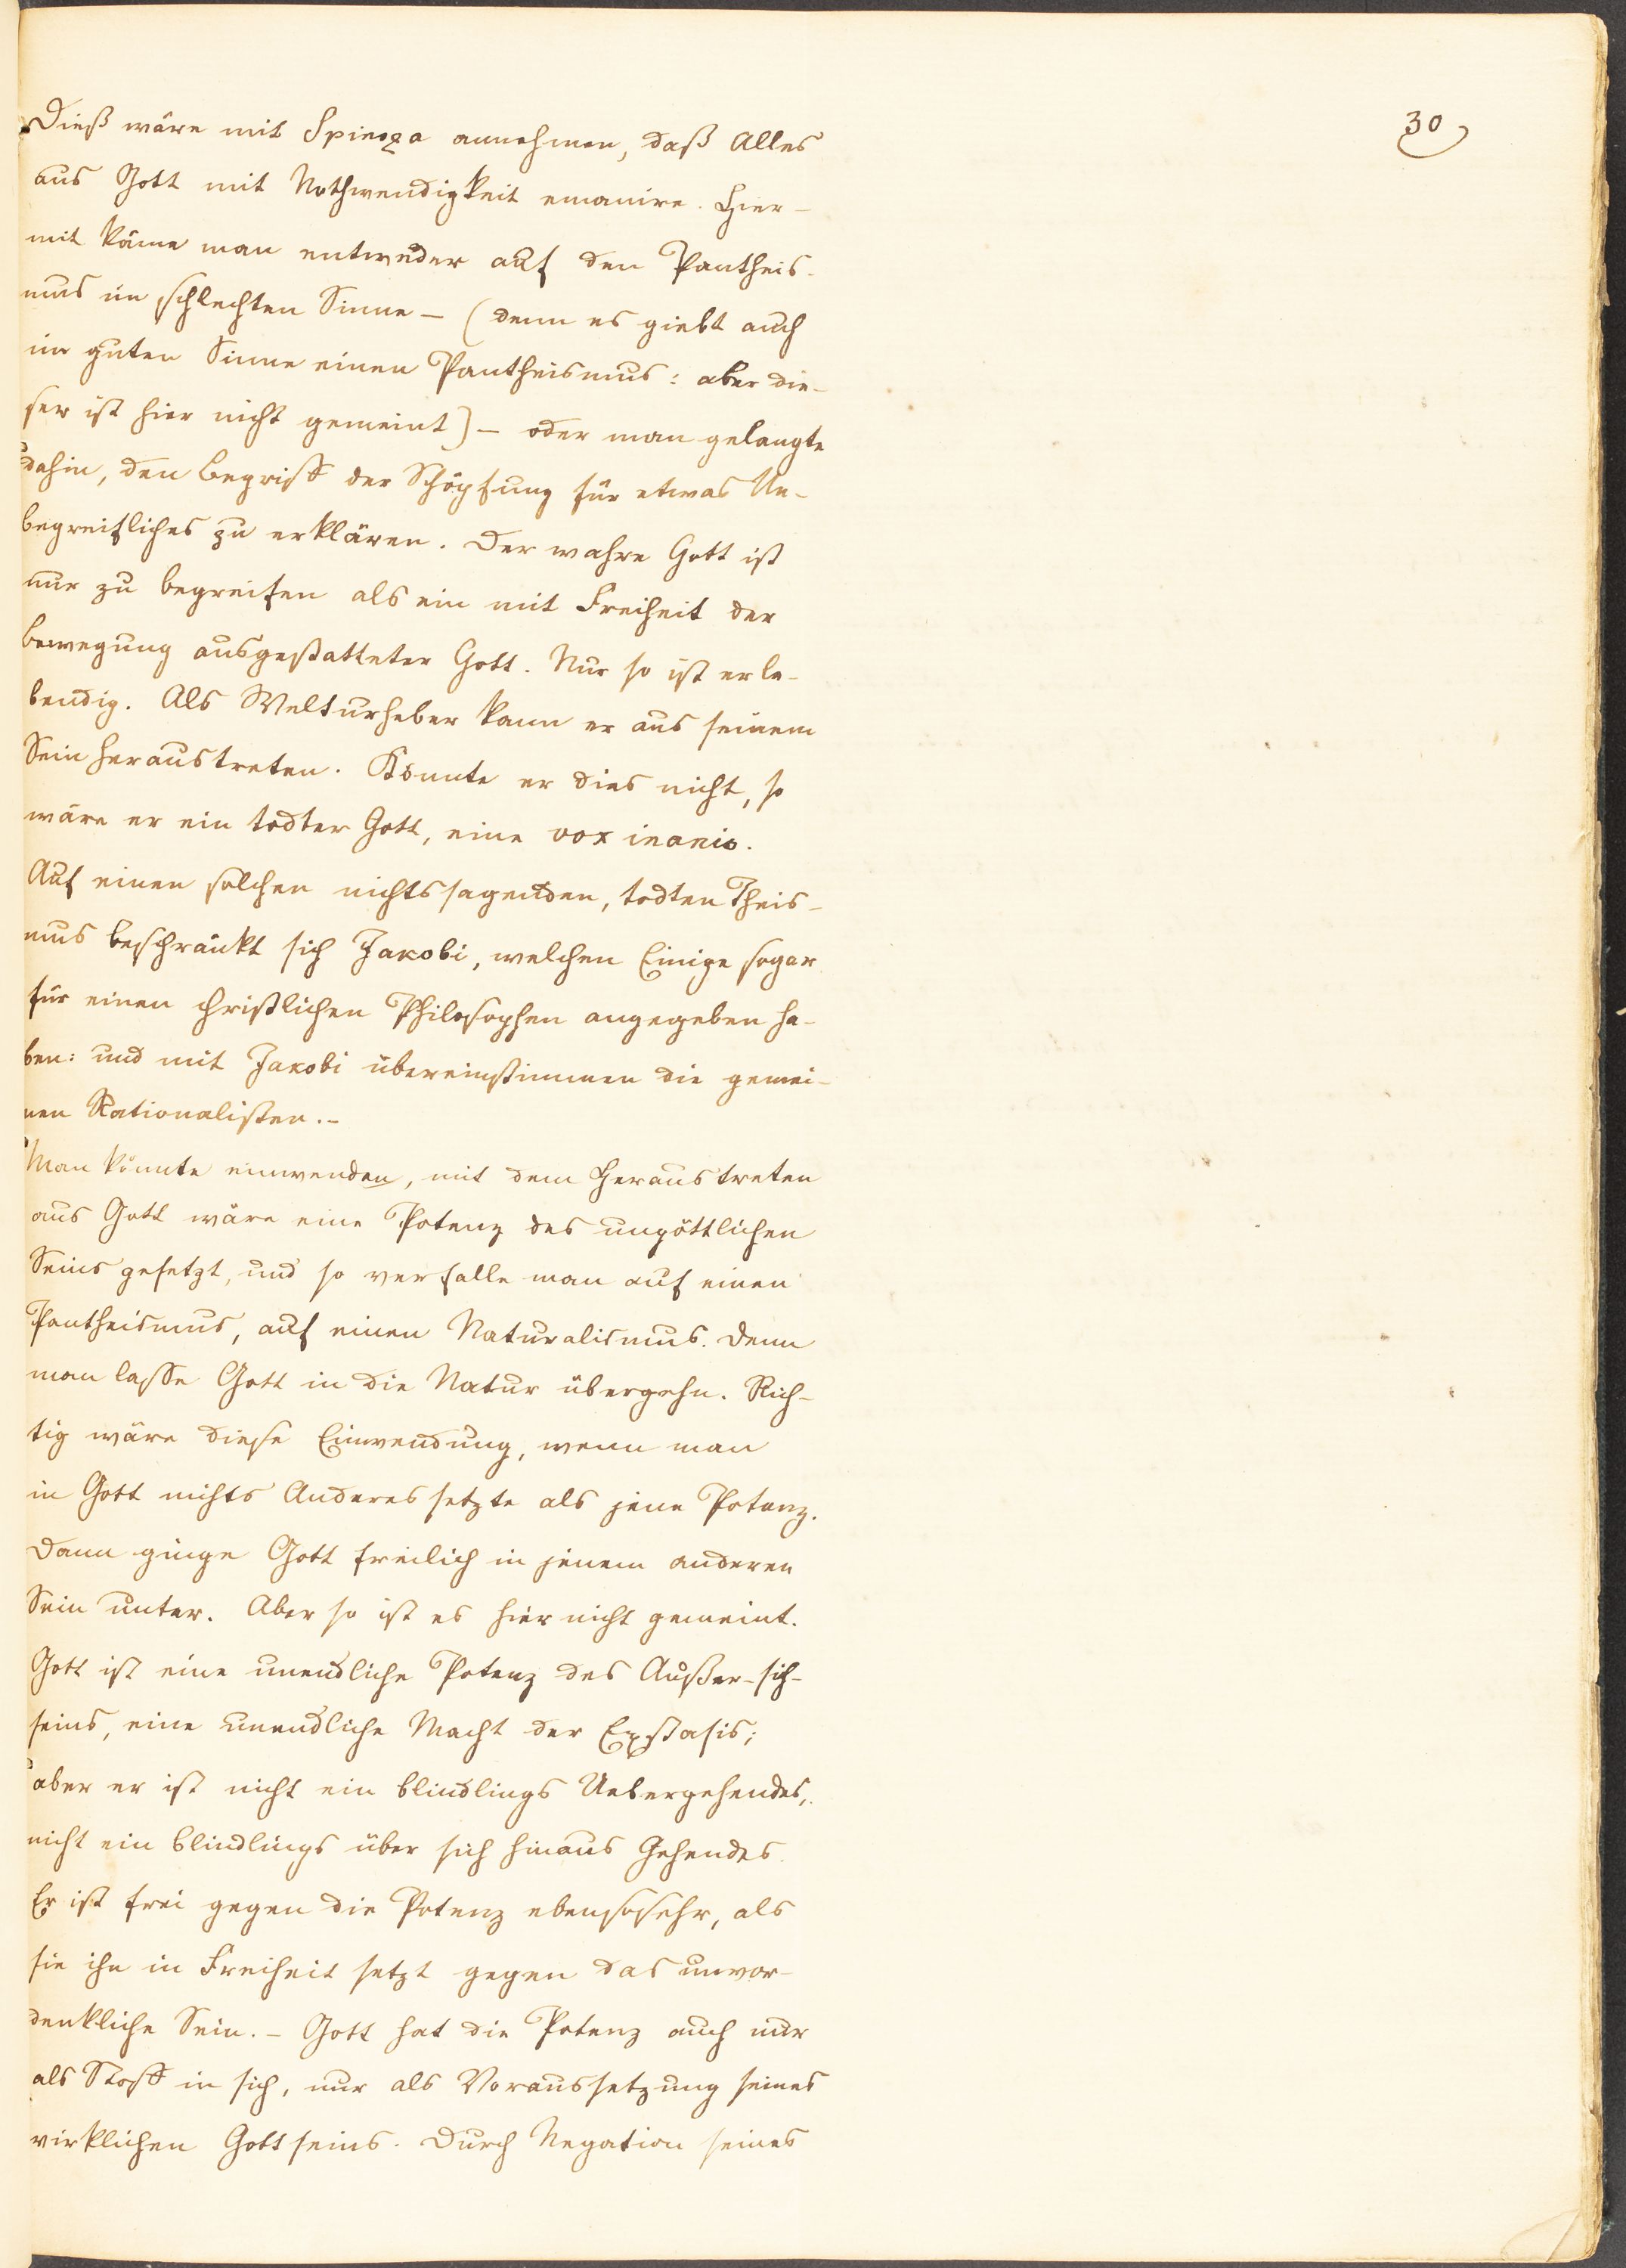 30
Dieß wäre mit Spinoza annehmen, daß Alles
aus Gott mit Nothwendigkeit emanire. Hier-
mit käme man entweder auf den Pantheis-
mus im schlechten Sinne – (denn es giebt auch
im guten Sinne einen Pantheismus: aber die-
ser ist hier nicht gemeint) – oder man gelangte
dahin, den Begriff der Schöpfung für etwas Un-
begreifliches zu erklären. Der wahre Gott ist
nur zu begreifen als ein mit Freiheit der
Bewegung ausgestatteter Gott. Nur so ist er le-
bendig. Als Welturheber kann er aus seinem
Sein heraustreten. Könnte er dies nicht, so
wäre er ein todter Gott, eine vox inanis.
Auf einen solchen nichtssagenden, todten Theis-
mus beschränkt sich Jakobi, welchen Einige sogar
für einen christlichen Philosophen angegeben ha-
ben: und mit Jakobi übereinstimmen die gemei-
nen Rationalisten. –
Man könnte einwenden, mit dem Heraustreten
aus Gott wäre eine Potenz des ungöttlichen
Seins gesetzt, und so verfalle man auf einen
Pantheismus, auf einen Naturalismus. Denn
man lasse Gott in die Natur übergehn. Rich-
tig wäre diese Einwendung, wenn man
in Gott nichts Anderes setzte als jene Potenz.
Dann ginge Gott freilich in jenem anderen
Sein unter. Aber so ist es hier nicht gemeint.
Gott ist eine unendliche Potenz des Außer-sich-
seins, eine unendliche Macht der Exstasis;
aber er ist nicht ein blindlings Uebergehendes,
nicht ein blindlings über sich hinaus Gehendes.
Er ist frei gegen die Potenz ebensosehr, als
sie ihn in Freiheit setzt gegen das unvor-
denkliche Sein. – Gott hat die Potenz auch nur
als Stoff in sich, nur als Voraussetzung seines
wirklichen Gottseins. Durch Negation seines